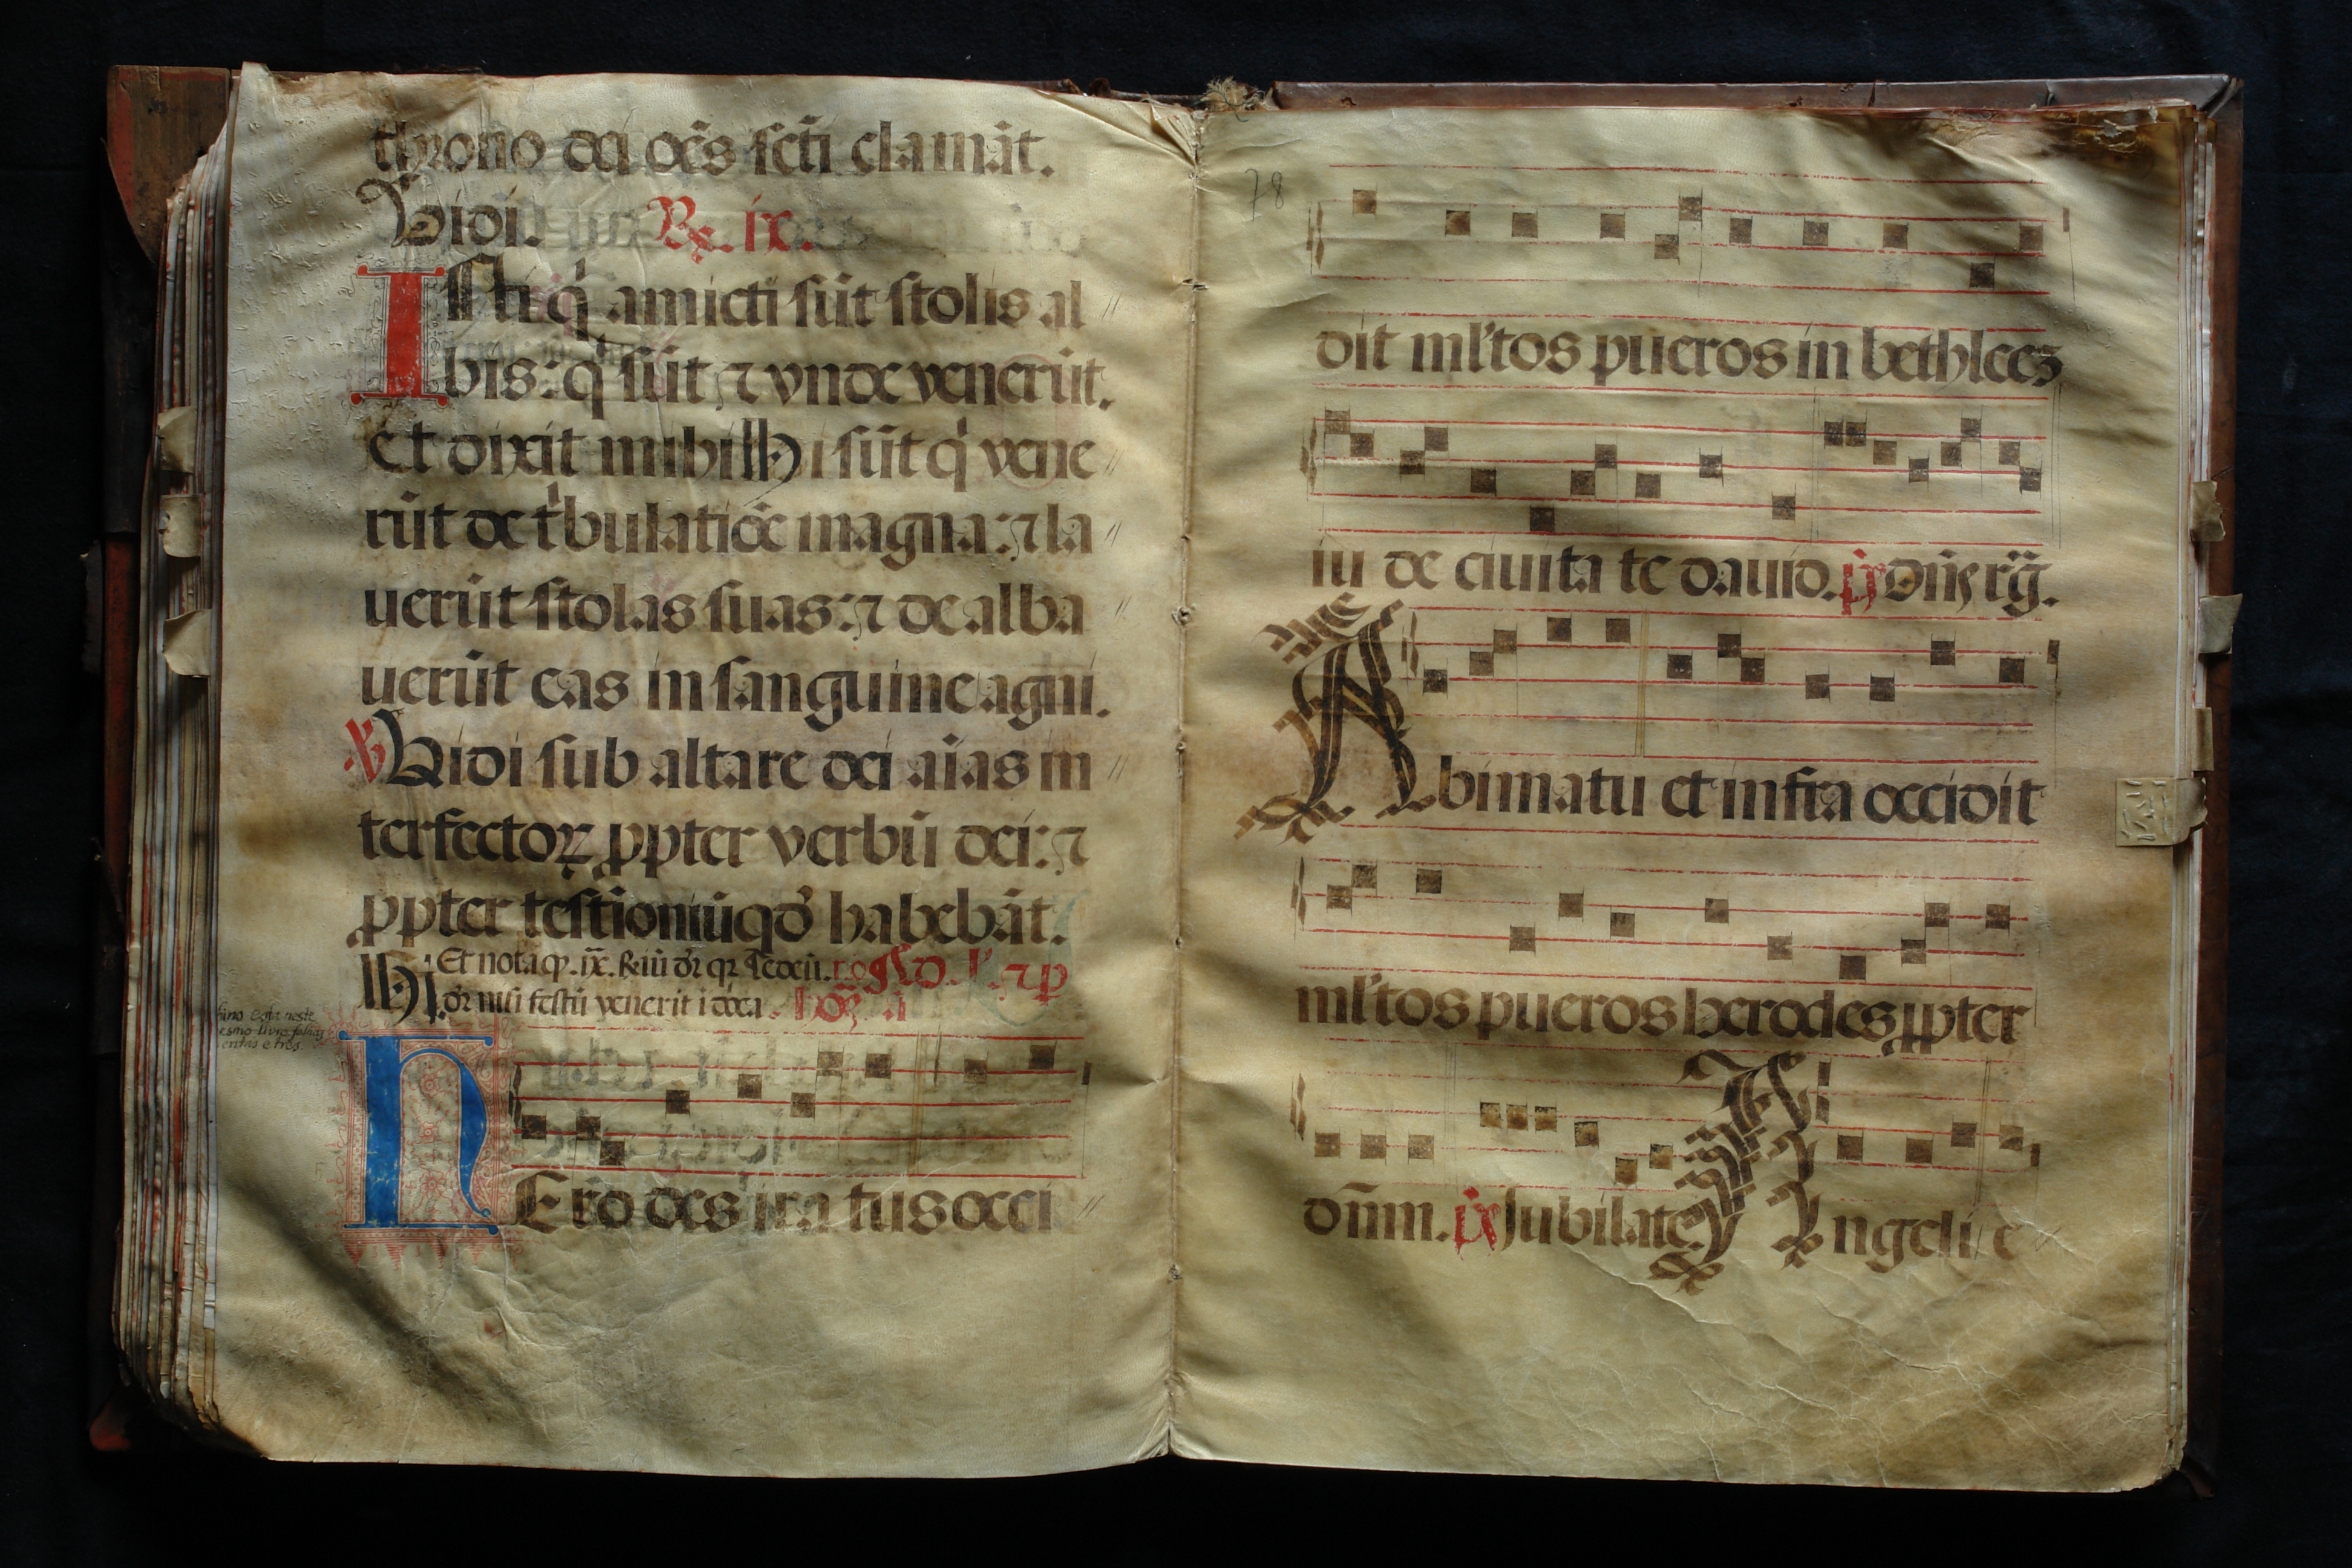 throno dei oēs scti clamāt.
Vidi. R̷. ix.
Isti q̇ amicti sūt stolis al
bis: q̇ sūt ⁊ vnde venerūt.
et dixit mihi Hi sūt q̇ vene
rūt de t̍bulatiōe magna: ⁊ la
uerūt stolas suas: ⁊ de alba
uerūt eas in sanguine agni.
℣ Vidi sub altare dei aīas in
terfectoꝝ ꝓpter verbū dei: ⁊
ꝓpter testioniūqđ habebāt.
Hi Et nota ꝙ .ix.
festū venerit
neste
HEro des ira tus occi
78
dit ml'tos pueros in bethleeꝫ
iu de ciuita te dauid. p̄s Dn̄s rḡ.
A bimatu et infra occidit
ml'tos pueros herodes ꝓpter
dn̄m. p̄s Jubilate. Angeli e